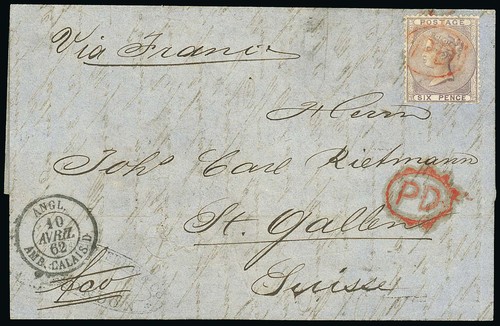 Via France
POSTAGE
SIX PENCE
Herrn
Joh.s Carl Rietmann
PD
St. Gallen
Suisse
ANGL.
10
AVRIL
62
AMB. CALAIS. D